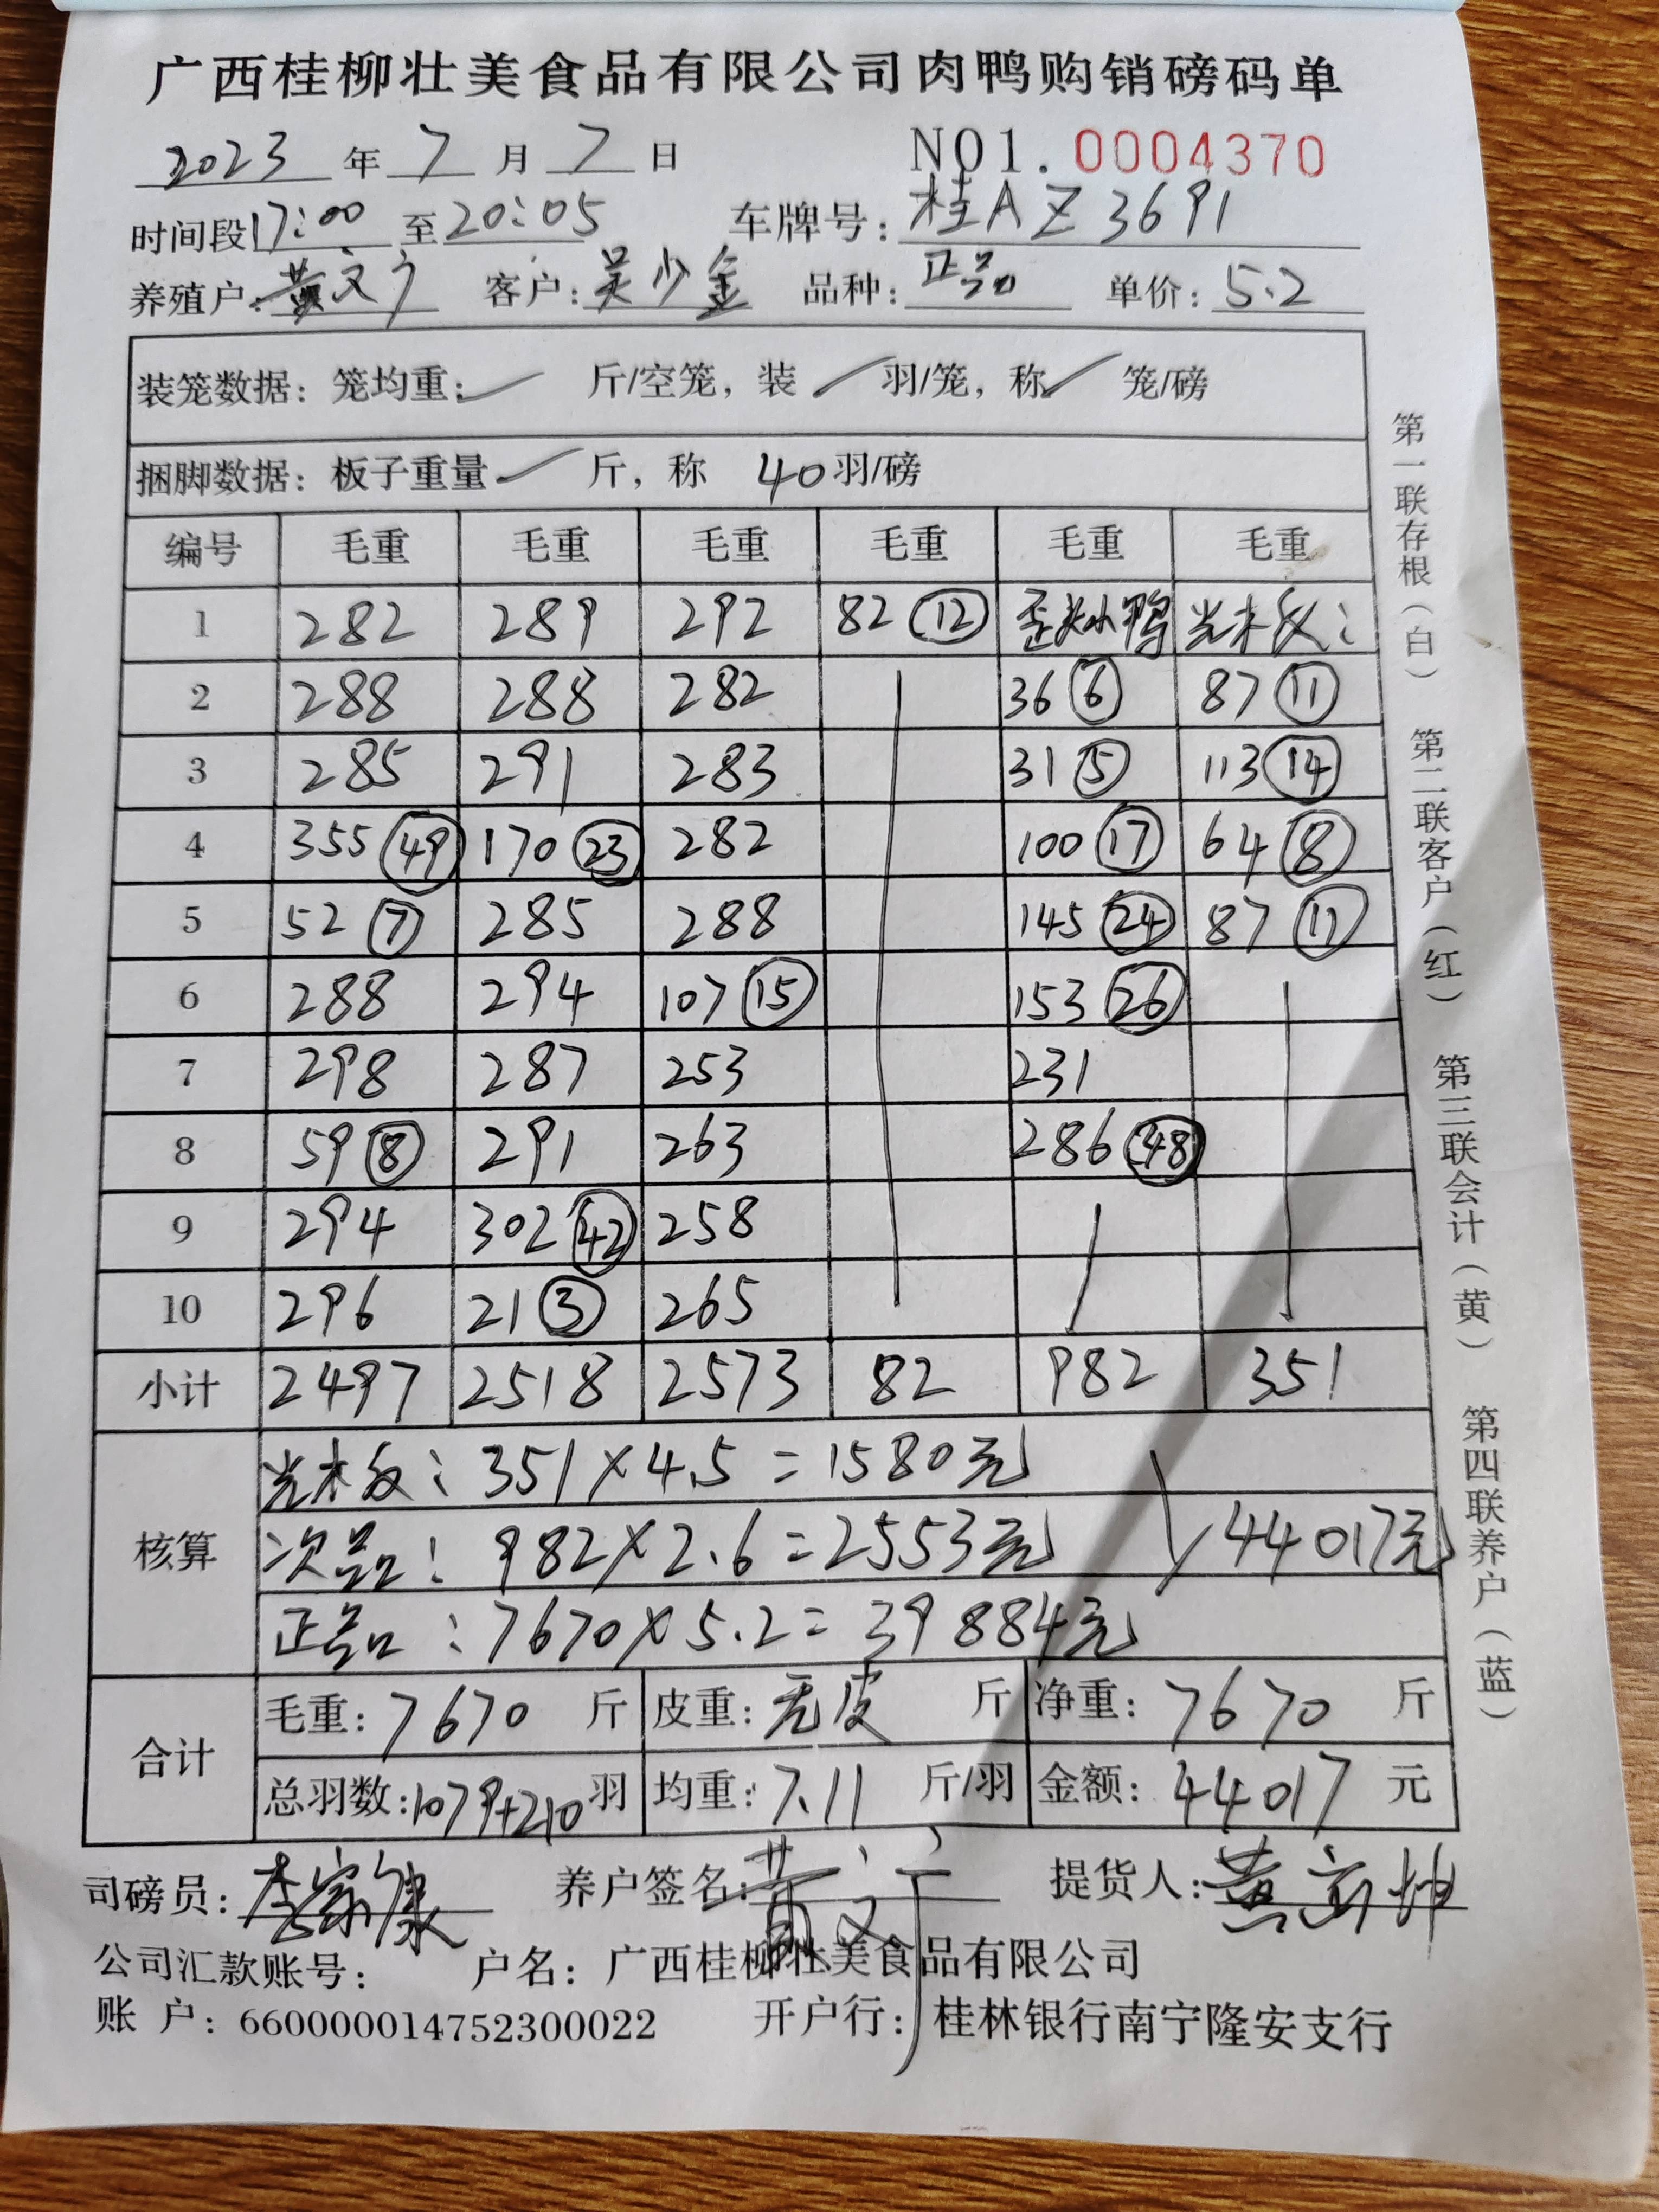 广西桂柳壮美食品有限公司肉鸭购销磅码单
2023 年 7 月 7 日 NO1. 0004370
时间段 17:00 至 20:05 车牌号: 桂AZ3691
养殖户: 黄文广 客户: 吴少金 品种: 正品 单价: 5.2
装笼数据: 笼均重: 斤/空笼, 装 羽/笼, 称 笼/磅
捆脚数据: 板子重量 斤, 称 40 羽/磅
编号 毛重 毛重 毛重 毛重 毛重 毛重
1 282 289 292 82 ⑫ 歪头小鸭 光木板:
2 288 288 282 36 ⑥ 87 ⑪
3 285 291 283 31 ⑤ 113 ⑭
4 355 ㊾ 170 ㉓ 282 100 ⑰ 64 ⑧
5 52 ⑦ 285 288 145 ㉔ 87 ⑪
6 288 294 107 ⑮ 153 ㉖
7 298 287 253 231
8 59 ⑧ 291 263 286 ㊽
9 294 302 ㊷ 258
10 296 21 ③ 265
小计 2497 2518 2573 82 982 351
核算
光木板: 351×4.5=1580元
次品: 982×2.6=2553元 44017元
正品: 7670×5.2=39884元
合计
毛重: 7670 斤 皮重: 无皮 斤 净重: 7670 斤
总羽数: 1079+210 羽 均重: 7.11 斤/羽 金额: 44017 元
司磅员: 李家康 养户签名: 黄文广 提货人: 黄
公司汇款账号: 户名: 广西桂柳壮美食品有限公司
账 户: 660000014752300022 开户行: 桂林银行南宁隆安支行
第一联存根(白) 第二联客户(红) 第三联会计(黄) 第四联养户(蓝)